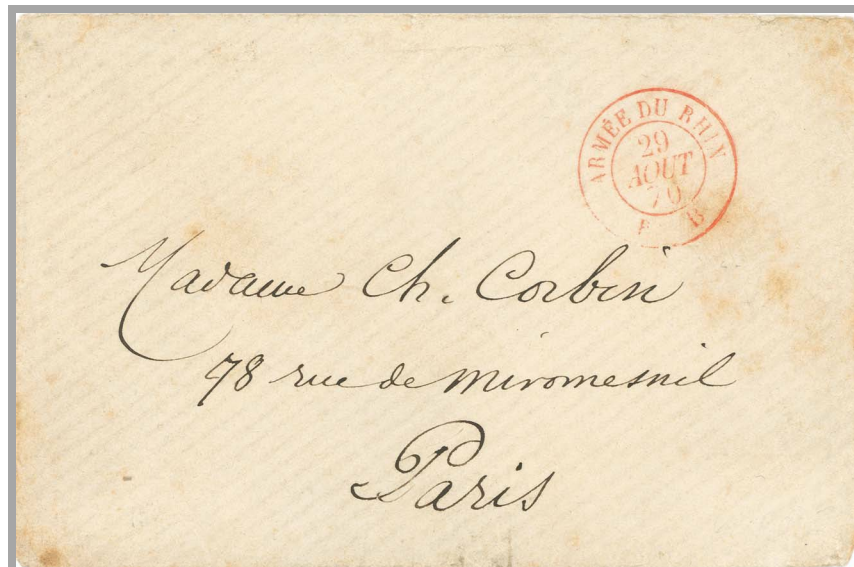 ARMÉE DU RHIN
29
AOUT
70
B
Madame Ch. Corbin
78 rue de Miromesnil
Paris